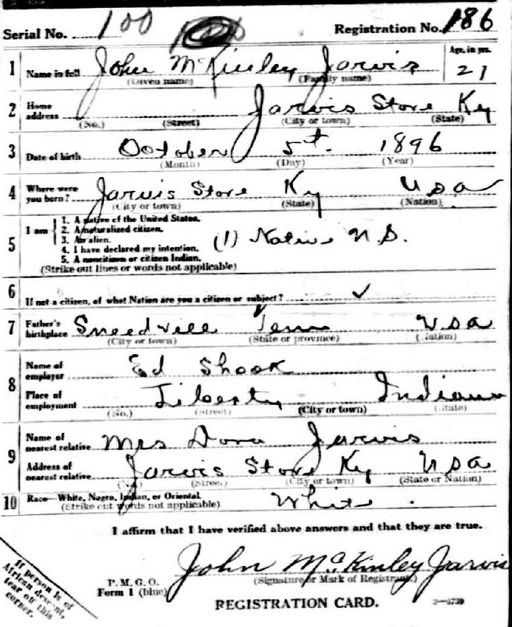 Serial No. 100 Registration No. 186
1 Name in full John McKinley Jarvis Age, in yrs. 21
(Given name) (Family name)
2 Home address Jarvis Store Ky
(No.) (Street) (City or town) (State)
3 Date of birth October 5th 1896
(Month) (Day) (Year)
4 Where were you born? Jarvis Store Ky USA
(City or town) (State) (Nation)
5 I am
1. A native of the United States.
2. A naturalized citizen.
3. An alien.
4. I have declared my intention.
5. A noncitizen or citizen Indian.
(Strike out lines or words not applicable)
(1) Native U.S.
6 If not a citizen, of what Nation are you a citizen or subject? ✓
7 Father's birthplace Sneedvele Tenn USA
(City or town) (State or province) (Nation)
8 Name of employer Ed Shook
Place of employment Liberty Indiana
(No.) (Street) (City or town) (State)
9 Name of nearest relative Mrs Dora Jarvis
Address of nearest relative Jarvis Store Ky USA
(No.) (Street) (City or town) (State or Nation)
10 Race—White, Negro, Indian, or Oriental. White.
(Strike out words not applicable)
I affirm that I have verified above answers and that they are true.
John McKinley Jarvis
P. M. G. O.
Form 1 (blue)
(Signature or Mark of Registrant)
REGISTRATION CARD.
If person is of
African descent,
tear off this
corner.